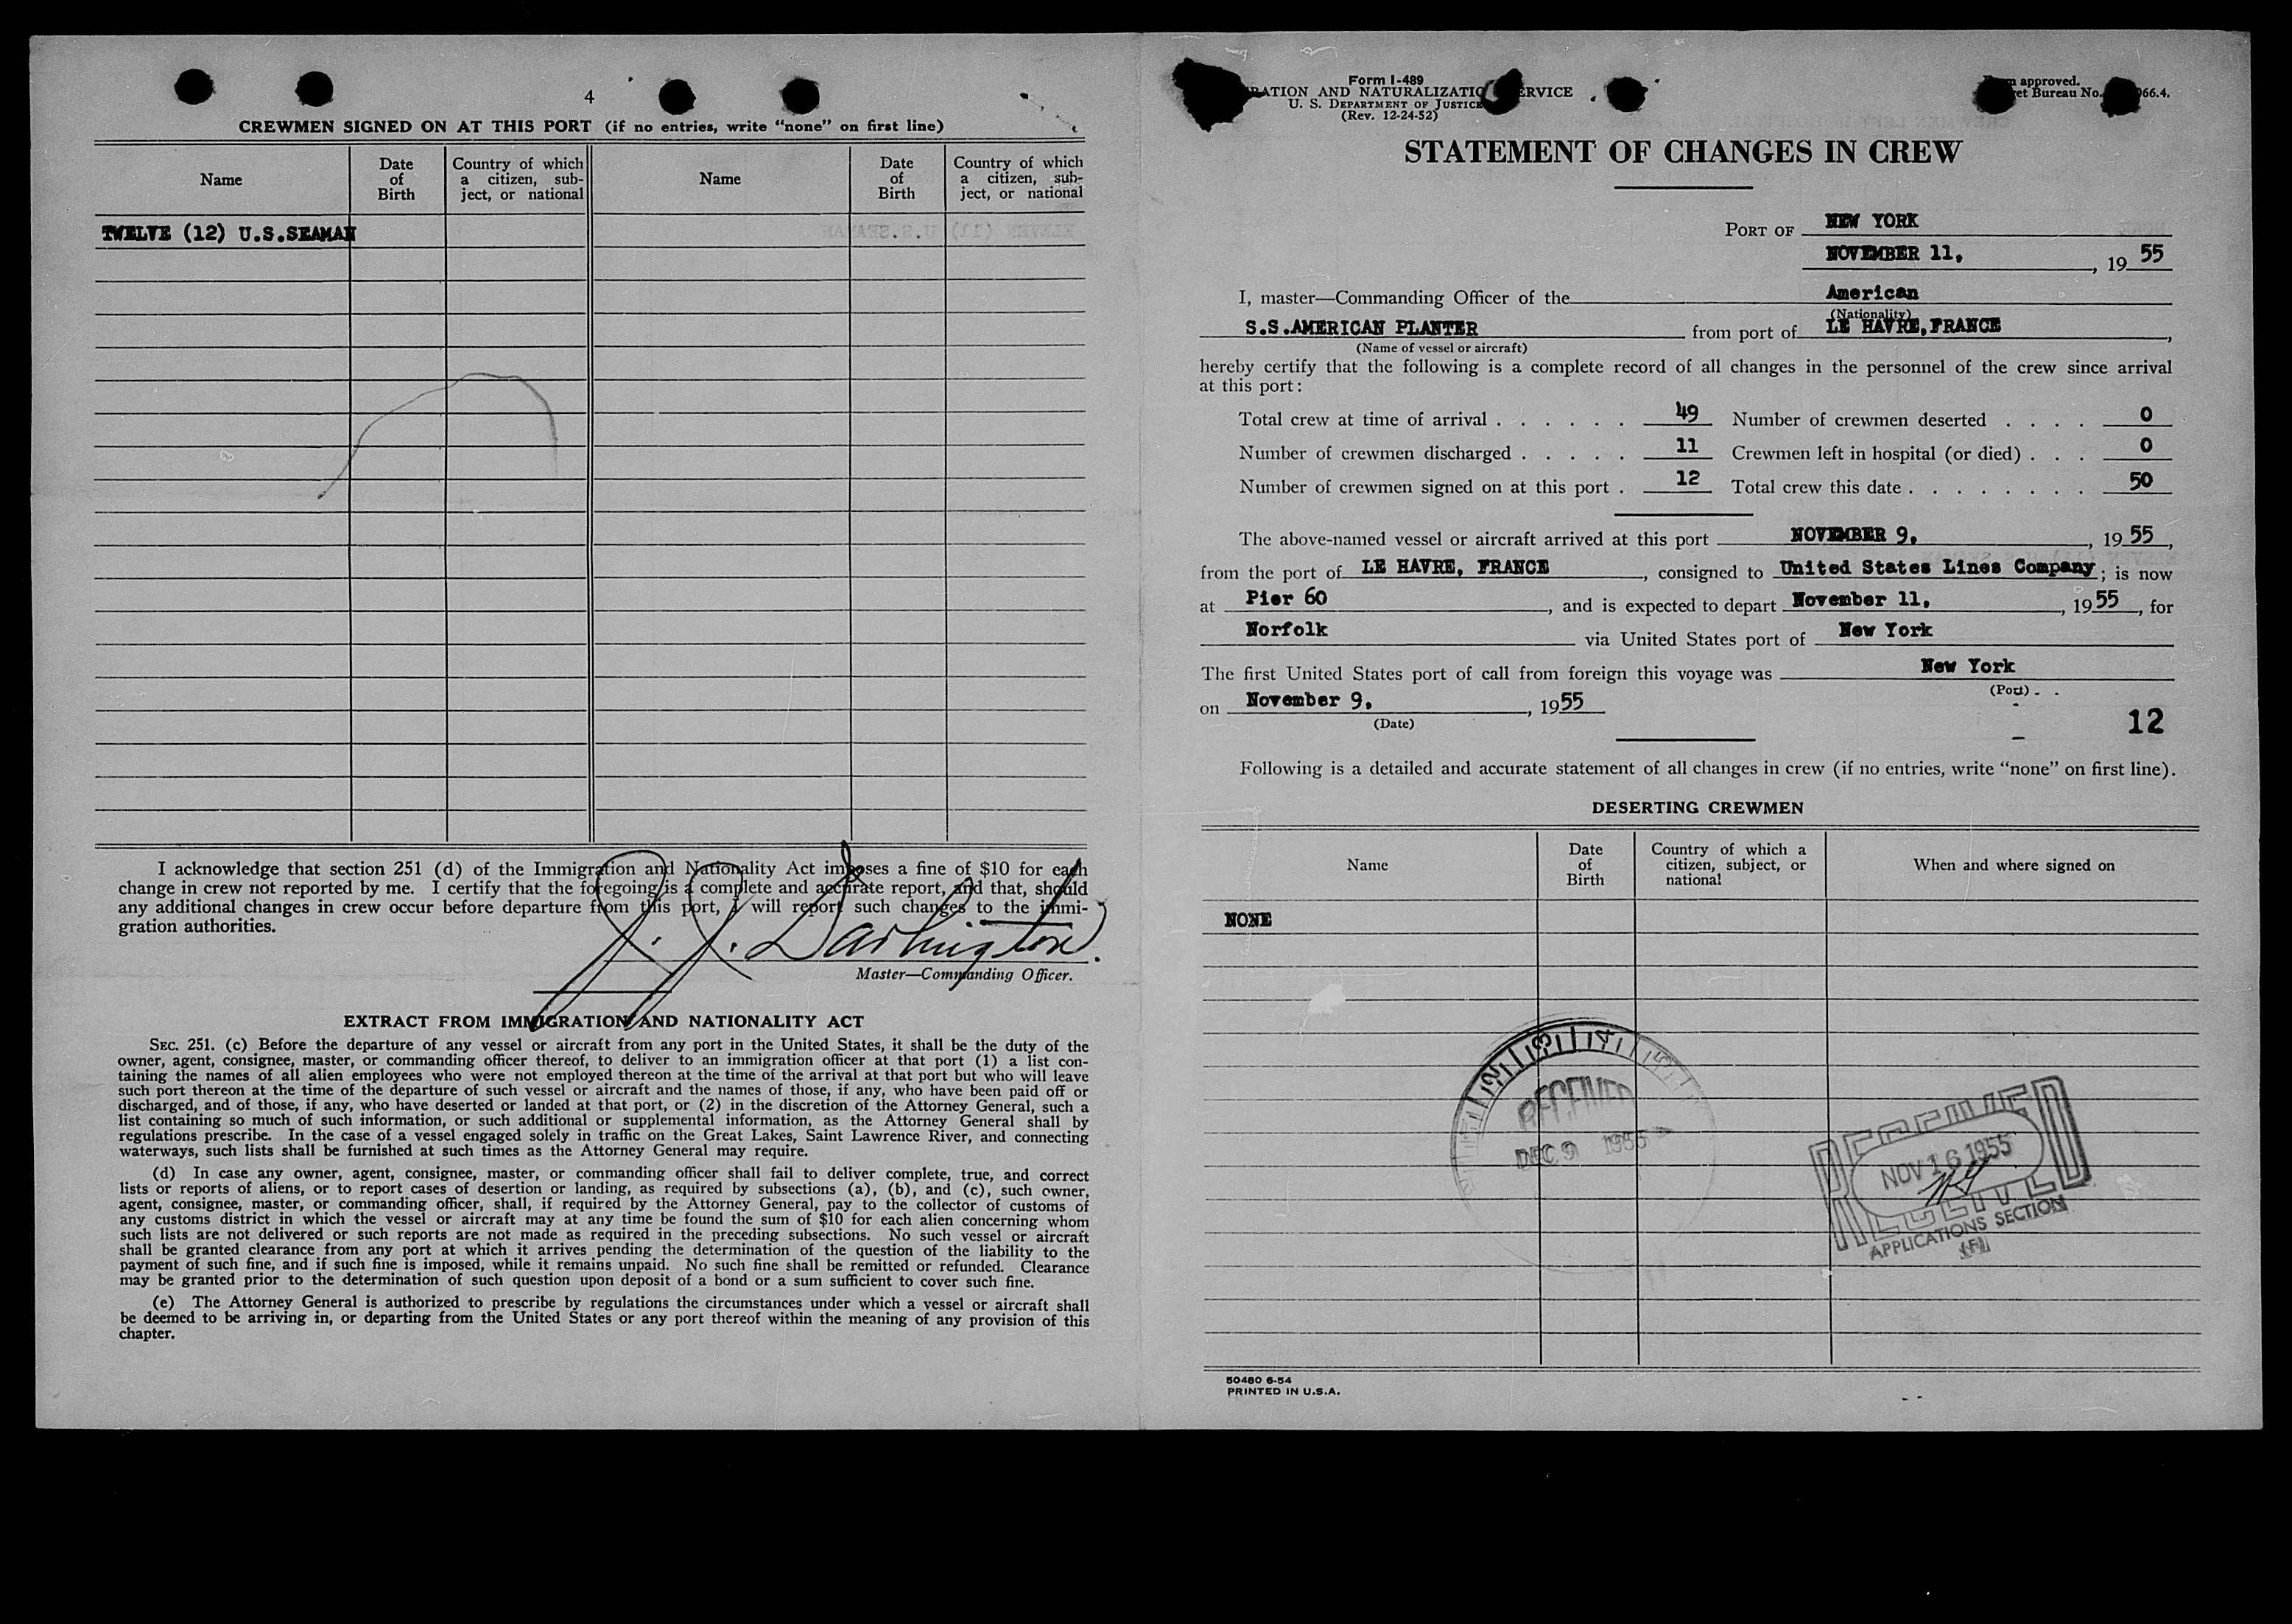 4
CREWMEN SIGNED ON AT THIS PORT (if no entries, write “none” on first line)
Name
Date of Birth
Country of which a citizen, sub-ject, or national
Name
Date of Birth
Country of which a citizen, sub-ject, or national
TWELVE (12) U.S.SEAMAN
I acknowledge that section 251 (d) of the Immigration and Nationality Act imposes a fine of $10 for each
change in crew not reported by me. I certify that the foregoing is a complete and accurate report, and that, should
any additional changes in crew occur before departure from this port, I will report such changes to the immi-
gration authorities.
J. J. Darlington
Master—Commanding Officer.
EXTRACT FROM IMMIGRATION AND NATIONALITY ACT
SEC. 251. (c) Before the departure of any vessel or aircraft from any port in the United States, it shall be the duty of the
owner, agent, consignee, master, or commanding officer thereof, to deliver to an immigration officer at that port (1) a list con-
taining the names of all alien employees who were not employed thereon at the time of the arrival at that port but who will leave
such port thereon at the time of the departure of such vessel or aircraft and the names of those, if any, who have been paid off or
discharged, and of those, if any, who have deserted or landed at that port, or (2) in the discretion of the Attorney General, such a
list containing so much of such information, or such additional or supplemental information, as the Attorney General shall by
regulations prescribe. In the case of a vessel engaged solely in traffic on the Great Lakes, Saint Lawrence River, and connecting
waterways, such lists shall be furnished at such times as the Attorney General may require.
(d) In case any owner, agent, consignee, master, or commanding officer shall fail to deliver complete, true, and correct
lists or reports of aliens, or to report cases of desertion or landing, as required by subsections (a), (b), and (c), such owner,
agent, consignee, master, or commanding officer, shall, if required by the Attorney General, pay to the collector of customs of
any customs district in which the vessel or aircraft may at any time be found the sum of $10 for each alien concerning whom
such lists are not delivered or such reports are not made as required in the preceding subsections. No such vessel or aircraft
shall be granted clearance from any port at which it arrives pending the determination of the question of the liability to the
payment of such fine, and if such fine is imposed, while it remains unpaid. No such fine shall be remitted or refunded. Clearance
may be granted prior to the determination of such question upon deposit of a bond or a sum sufficient to cover such fine.
(e) The Attorney General is authorized to prescribe by regulations the circumstances under which a vessel or aircraft shall
be deemed to be arriving in, or departing from the United States or any port thereof within the meaning of any provision of this
chapter.
Form I-489
AND NATURALIZATIO
U. S. DEPARTMENT OF JUSTICE
(Rev. 12-24-52)
approved.
Bureau No. 66.4.
STATEMENT OF CHANGES IN CREW
PORT OF NEW YORK
NOVEMBER 11, , 19 55
I, master—Commanding Officer of the American
(Nationality)
S.S.AMERICAN PLANTER from port of LE HAVRE,FRANCE ,
(Name of vessel or aircraft)
hereby certify that the following is a complete record of all changes in the personnel of the crew since arrival
at this port:
Total crew at time of arrival . . . . . . 49 Number of crewmen deserted . . . . 0
Number of crewmen discharged . . . . . 11 Crewmen left in hospital (or died) . . . 0
Number of crewmen signed on at this port . 12 Total crew this date . . . . . . . . 50
The above-named vessel or aircraft arrived at this port NOVEMBER 9, , 19 55 ,
from the port of LE HAVRE, FRANCE , consigned to United States Lines Company ; is now
at Pier 60 , and is expected to depart November 11, , 19 55 , for
Norfolk via United States port of New York
The first United States port of call from foreign this voyage was New York
(Port)
on November 9, , 19 55
(Date)
12
Following is a detailed and accurate statement of all changes in crew (if no entries, write “none” on first line).
DESERTING CREWMEN
Name
Date of Birth
Country of which a citizen, subject, or national
When and where signed on
NONE
RECEIVED
DEC 9 1955
RECEIVED
NOV 16 1955
RECEIVED
APPLICATIONS SECTION
50480 6-54
PRINTED IN U.S.A.